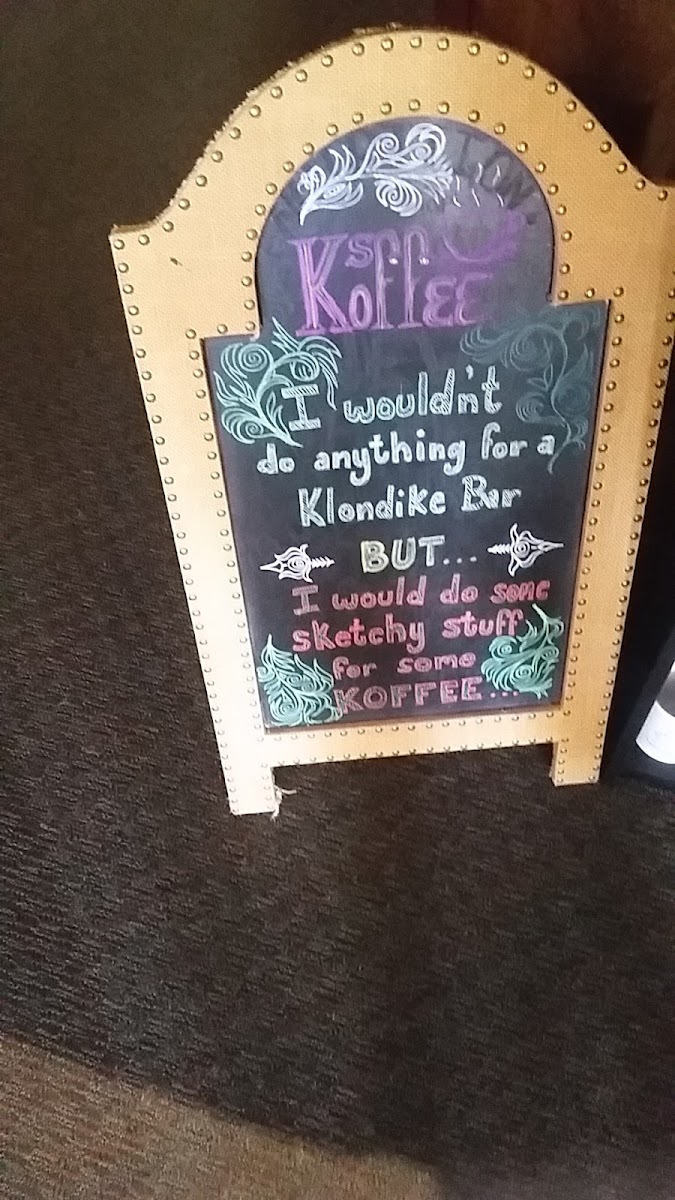 Koffee
I wouldn't
do anything for a
Klondike Bar
BUT...
I would do some
sketchy stuff
for some
KOFFEE...